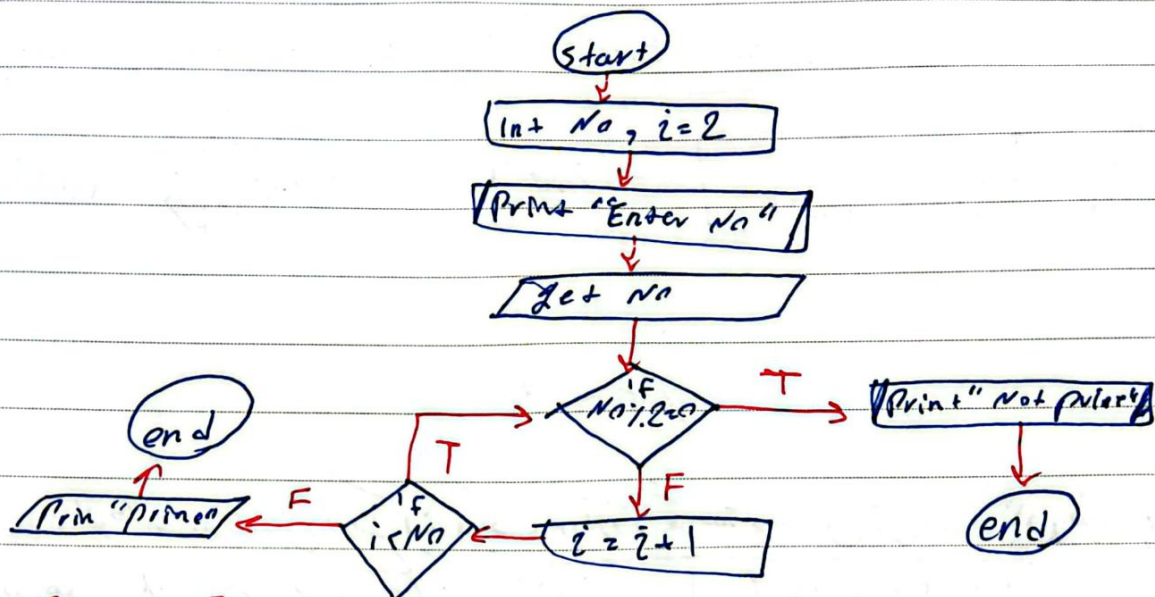 start
Int No, i=2
Print "Enter No"
get No
if
No%2=0
T
Print "Not prime"
end
F
i = i+1
if
i<No
T
F
Prin "prime"
end